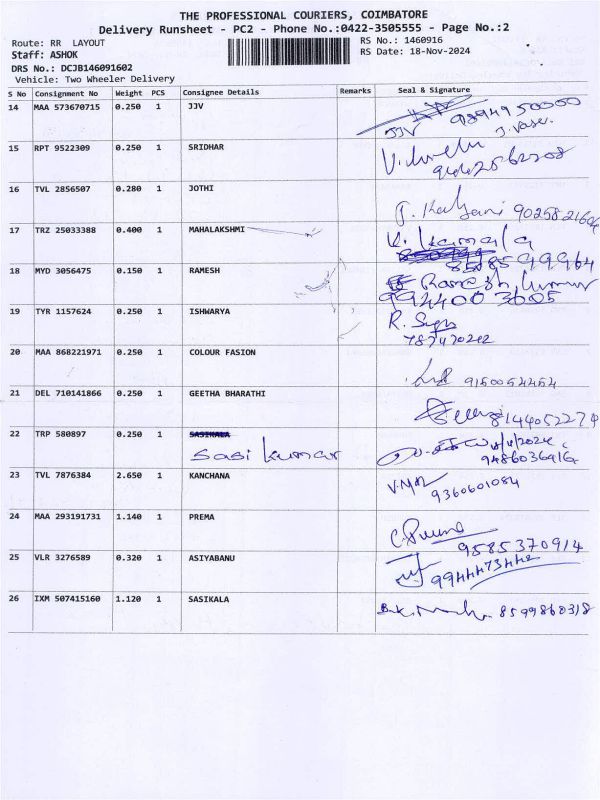 THE PROFESSIONAL COURIERS, COIMBATORE
Delivery Runsheet - PC2 - Phone No.:0422-3505555 - Page No.:2
Route: RR LAYOUT
RS No.: 1460916
Staff: ASHOK
RS Date: 18-Nov-2024
DRS No.: DCJB146091602
Vehicle: Two Wheeler Delivery
S No Consignment No Weight PCS Consignee Details Remarks Seal & Signature
14 MAA 573670715 0.250 1 JJV
9894950000
JJV
15 RPT 9522309 0.250 1 SRIDHAR
16 TVL 2856507 0.280 1 JOTHI
9025821604
17 TRZ 25033388 0.400 1 MAHALAKSHMI K. kamala
18 MYD 3056475 0.150 1 RAMESH Ramesh kumar
9944003605
19 TYR 1157624 0.250 1 ISHWARYA R.
20 MAA 868221971 0.250 1 COLOUR FASION
9150054454
21 DEL 710141866 0.250 1 GEETHA BHARATHI
8144052274
22 TRP 580897 0.250 1 SASIKALA
Sasi kumar
9486036916
23 TVL 7876384 2.650 1 KANCHANA
9360601084
24 MAA 293191731 1.140 1 PREMA
9585370914
25 VLR 3276589 0.320 1 ASIYABANU
9944473442
26 IXM 507415160 1.120 1 SASIKALA 8599860318